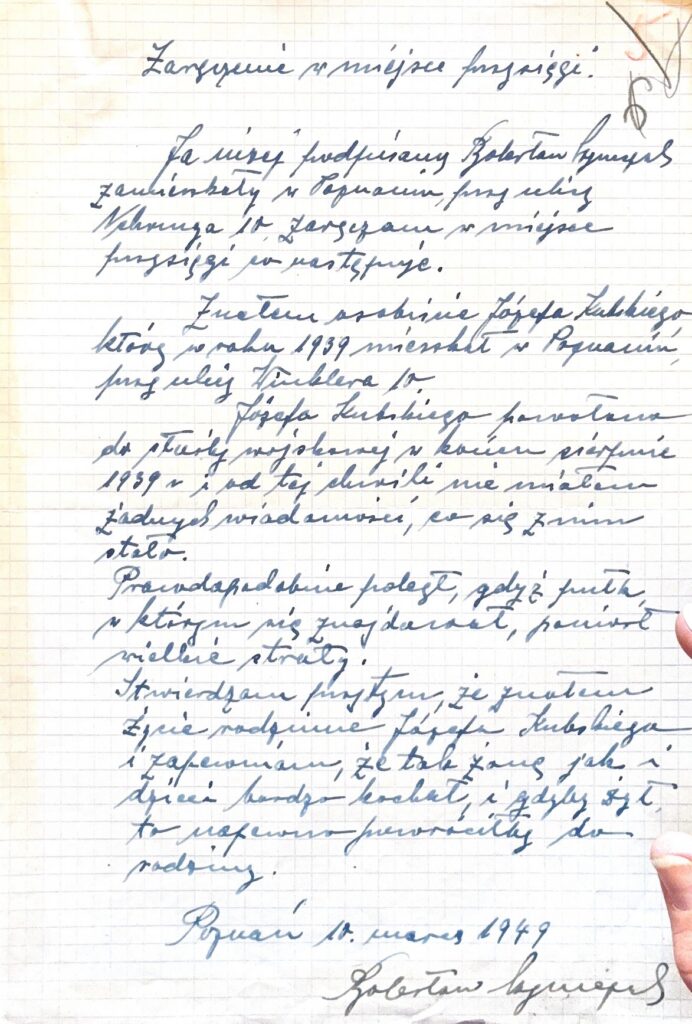 Zaręczenie w miejsce przysięgi.
Ja niżej podpisany Bolesław
zamieszkały w Poznaniu, przy ulicy
Nehringa 10, zaręczam w miejsce
przysięgi co następuje.
Znałem osobiście Józefa Kubskiego
który w roku 1939 mieszkał w Poznaniu,
przy ulicy Winklera 10.
Józefa Kubskiego powołano
do służby wojskowej w końcu sierpnia
1939 r i od tej chwili nie miałem
żadnych wiadomości, co się z nim
stało.
Prawdopodobnie poległ, gdyż pułk,
w którym się znajdował, poniósł
wielkie straty.
Stwierdzam przytym, że znałem
życie rodzinne Józefa Kubskiego
i zapewniam, że tak żonę jak i
dzieci bardzo kochał, i gdyby żył,
to napewno powróciłby do
rodziny.
Poznań 10. marca 1949
Bolesław